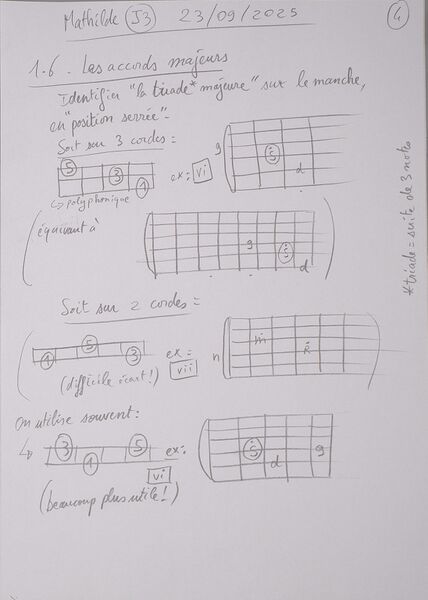 Mathilde J3 23/09/2025 4
1.6. Les accords majeurs
Identifier "la triade* majeure" sur le manche,
en "position serrée".
Soit sur 3 cordes:
5 3 1
↳ polyphonique
ex: vi
g S d
équivaut à
g S d
*triade = suite de 3 notes
Soit sur 2 cordes =
1 5 3
(difficile écart!)
ex = vii
n m R
On utilise souvent:
↳ 3 1 5 ex:
vi
(beaucoup plus utile!)
S d g